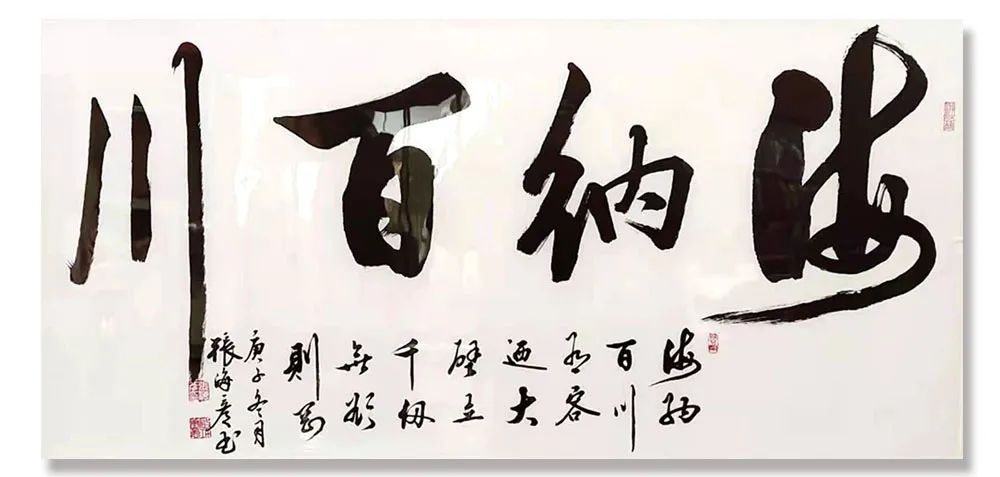 海納百川
海納
百川
有容
迺大
壁立
千仞
無欲
則剛
庚子冬月
張海彦书